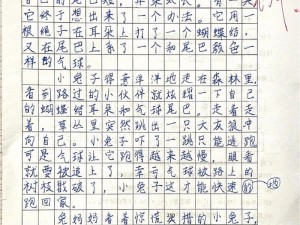 自己的尾巴短，并采
它终于想出来了一个办法。它用一
根绳子在耳朵上打了一个蝴蝶结，
又在尾巴上系了一个和尾巴颜色一
样的气球。
小兔子得意洋洋地走在森林里，
看到路过的小伙伴就炫耀一下自己
的蝴蝶结耳朵和气球尾巴。走着走
着，草丛里突然跳出一只大灰狼冲
向自己。小兔子吓了一跳只能逃跑
可是气球让它跑得越来越慢，眼看
就要被追上了，幸亏气球被路上的
树枝戳破了，小兔子这才能快速的
地
跑回家。
兔妈妈看着惊慌失措的小兔子，